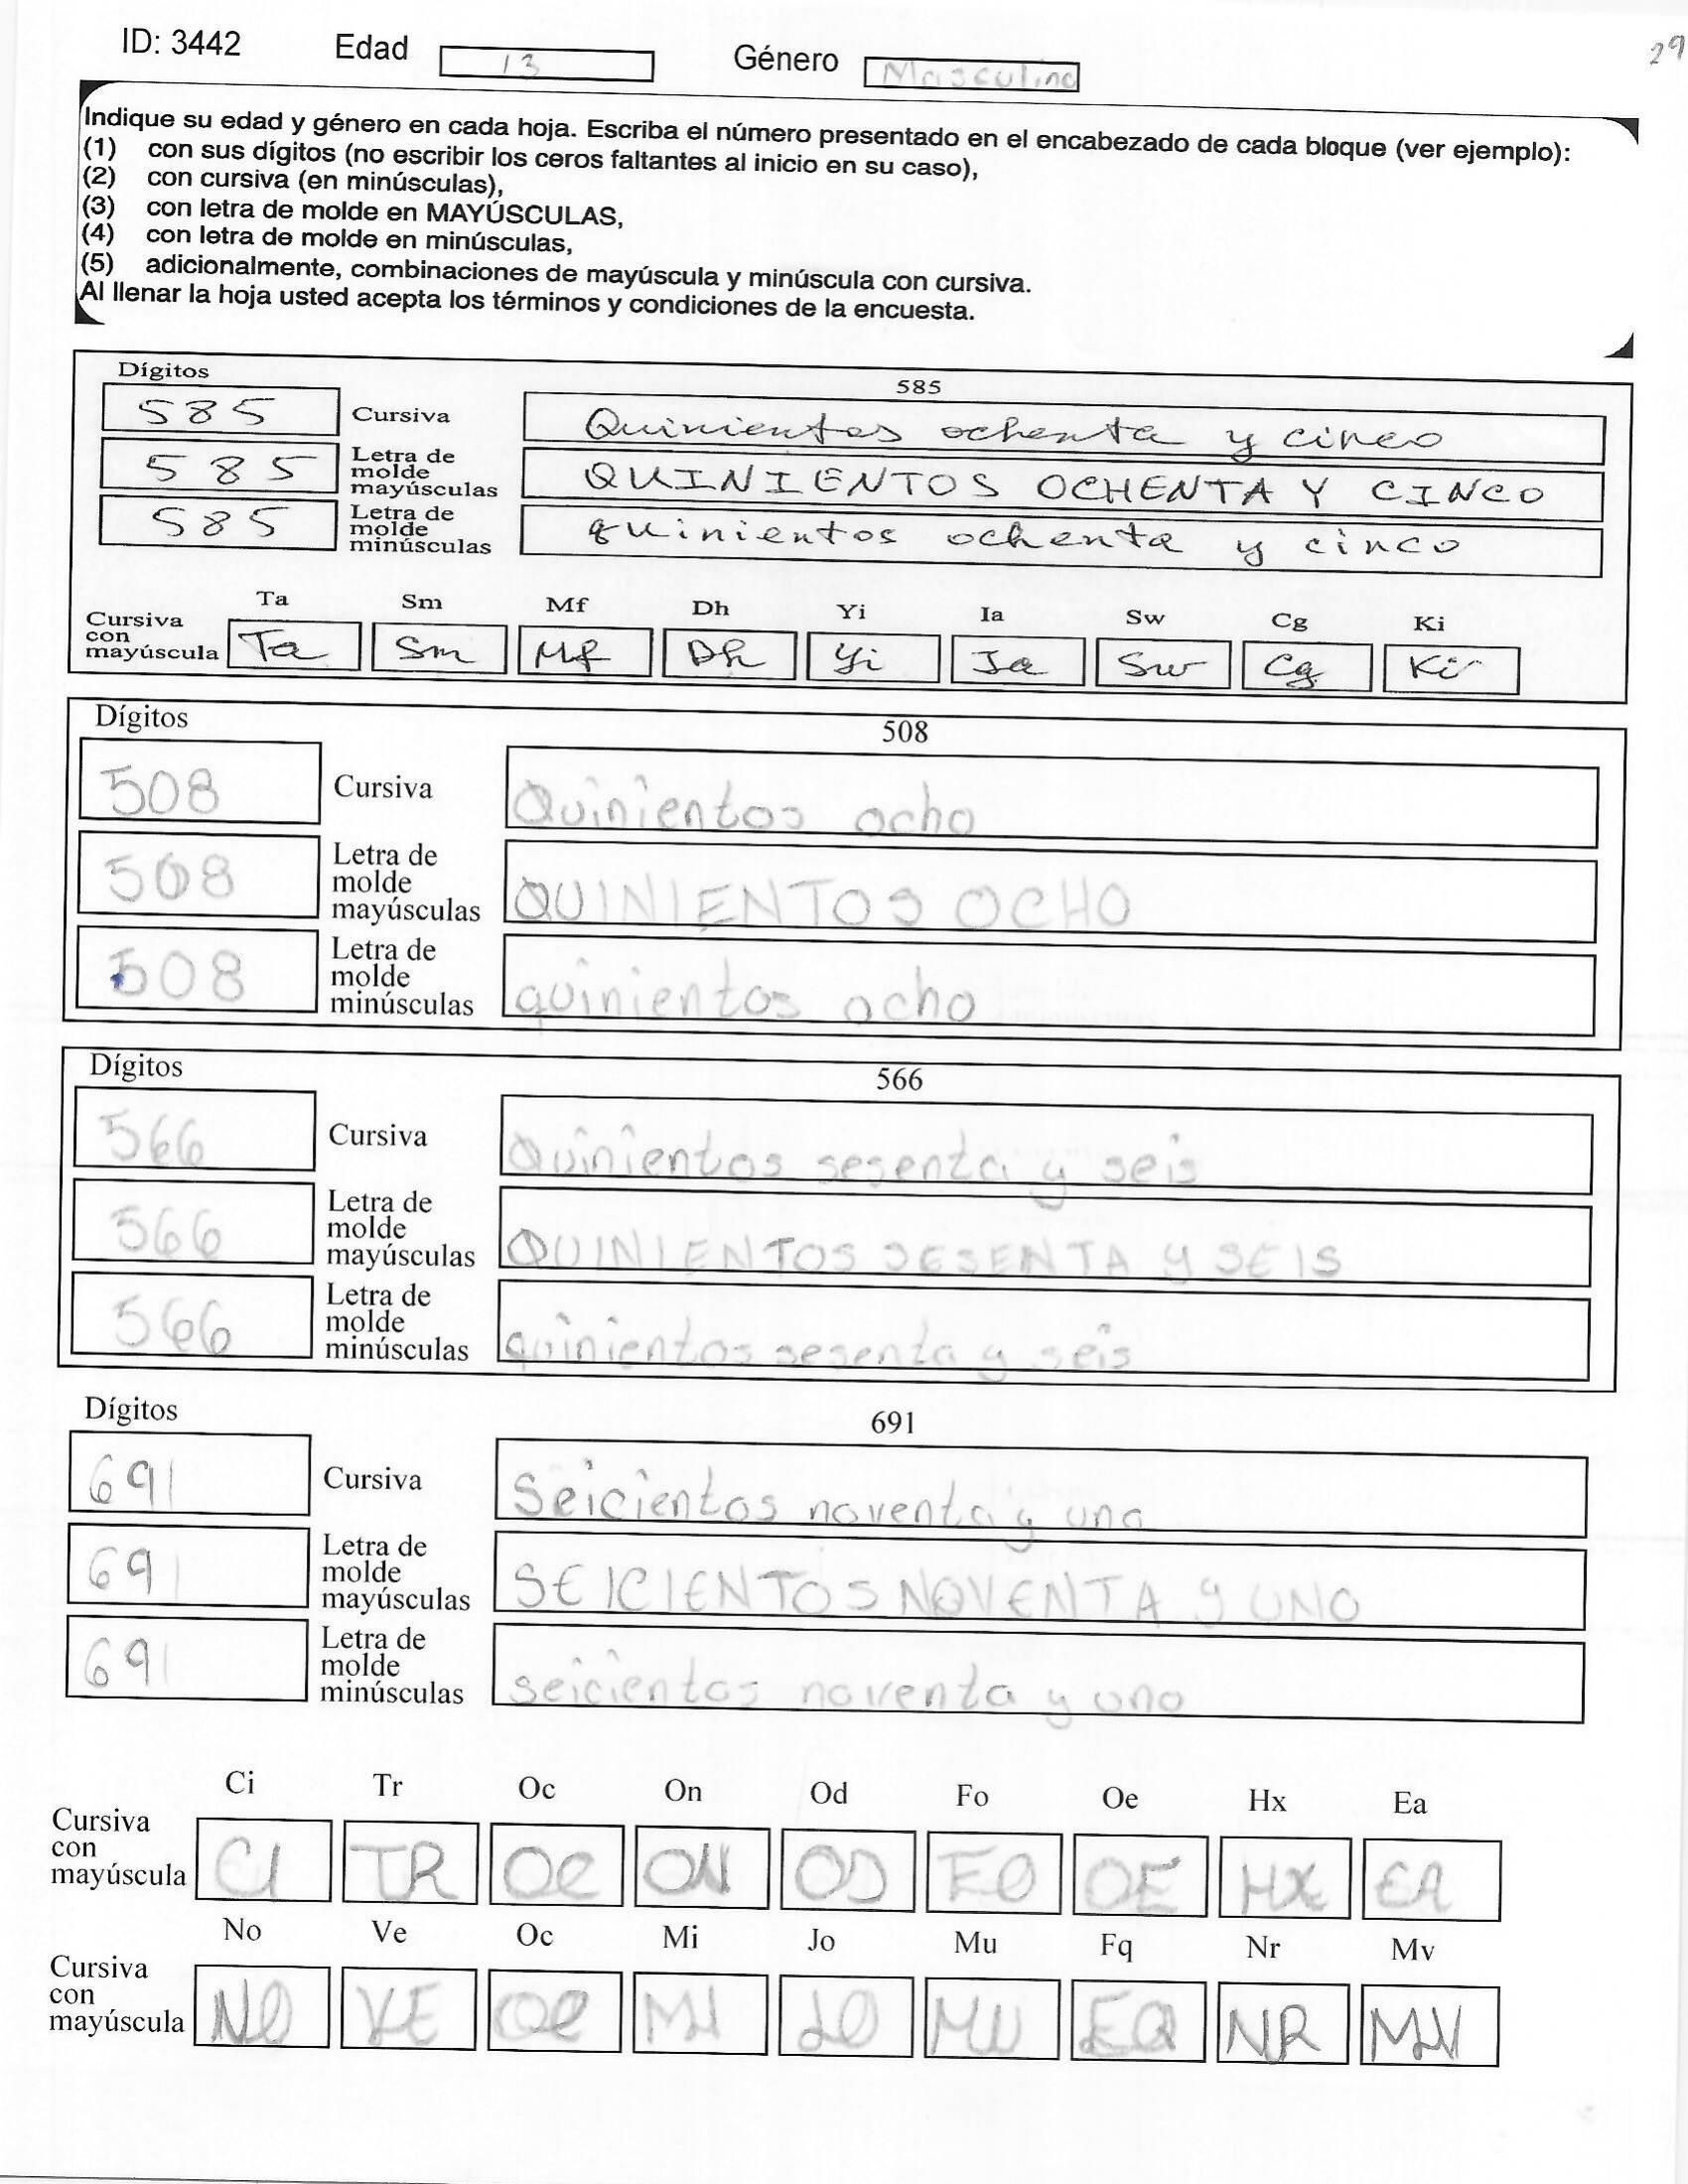 ID: 3442 Edad 13 Género Masculino 29
Indique su edad y género en cada hoja. Escriba el número presentado en el encabezado de cada bloque (ver ejemplo):
(1) con sus dígitos (no escribir los ceros faltantes al inicio en su caso),
(2) con cursiva (en minúsculas),
(3) con letra de molde en MAYÚSCULAS,
(4) con letra de molde en minúsculas,
(5) adicionalmente, combinaciones de mayúscula y minúscula con cursiva.
Al llenar la hoja usted acepta los términos y condiciones de la encuesta.
Dígitos 585
585 Cursiva Quinientos ochenta y cinco
585 Letra de molde mayúsculas QUINIENTOS OCHENTA Y CINCO
585 Letra de molde minúsculas quinientos ochenta y cinco
Ta Sm Mf Dh Yi Ia Sw Cg Ki
Cursiva con mayúscula Ta Sm Mf Dh Yi Ia Sw Cg Ki
Dígitos 508
508 Cursiva Quinientos ocho
508 Letra de molde mayúsculas QUINIENTOS OCHO
508 Letra de molde minúsculas quinientos ocho
Dígitos 566
566 Cursiva Quinientos sesenta y seis
566 Letra de molde mayúsculas QUINIENTOS SESENTA y SEIS
566 Letra de molde minúsculas quinientos sesenta y seis
Dígitos 691
691 Cursiva Seicientos noventa y uno
691 Letra de molde mayúsculas SEICIENTOS NOVENTA y UNO
691 Letra de molde minúsculas seicientos noventa y uno
Ci Tr Oc On Od Fo Oe Hx Ea
Cursiva con mayúscula CI TR OC ON OD FO OE HX EA
No Ve Oc Mi Jo Mu Fq Nr Mv
Cursiva con mayúscula NO VE OC MI JO MU FQ NR MV